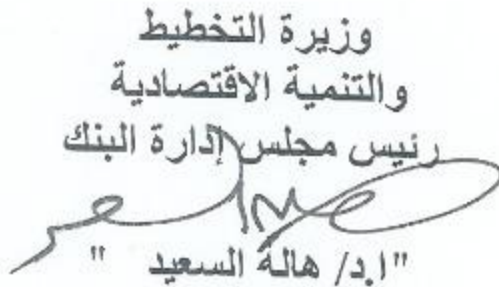 وزيرة التخطيط
والتنمية الاقتصادية
رئيس مجلس إدارة البنك
"ا.د/ هالة السعيد "